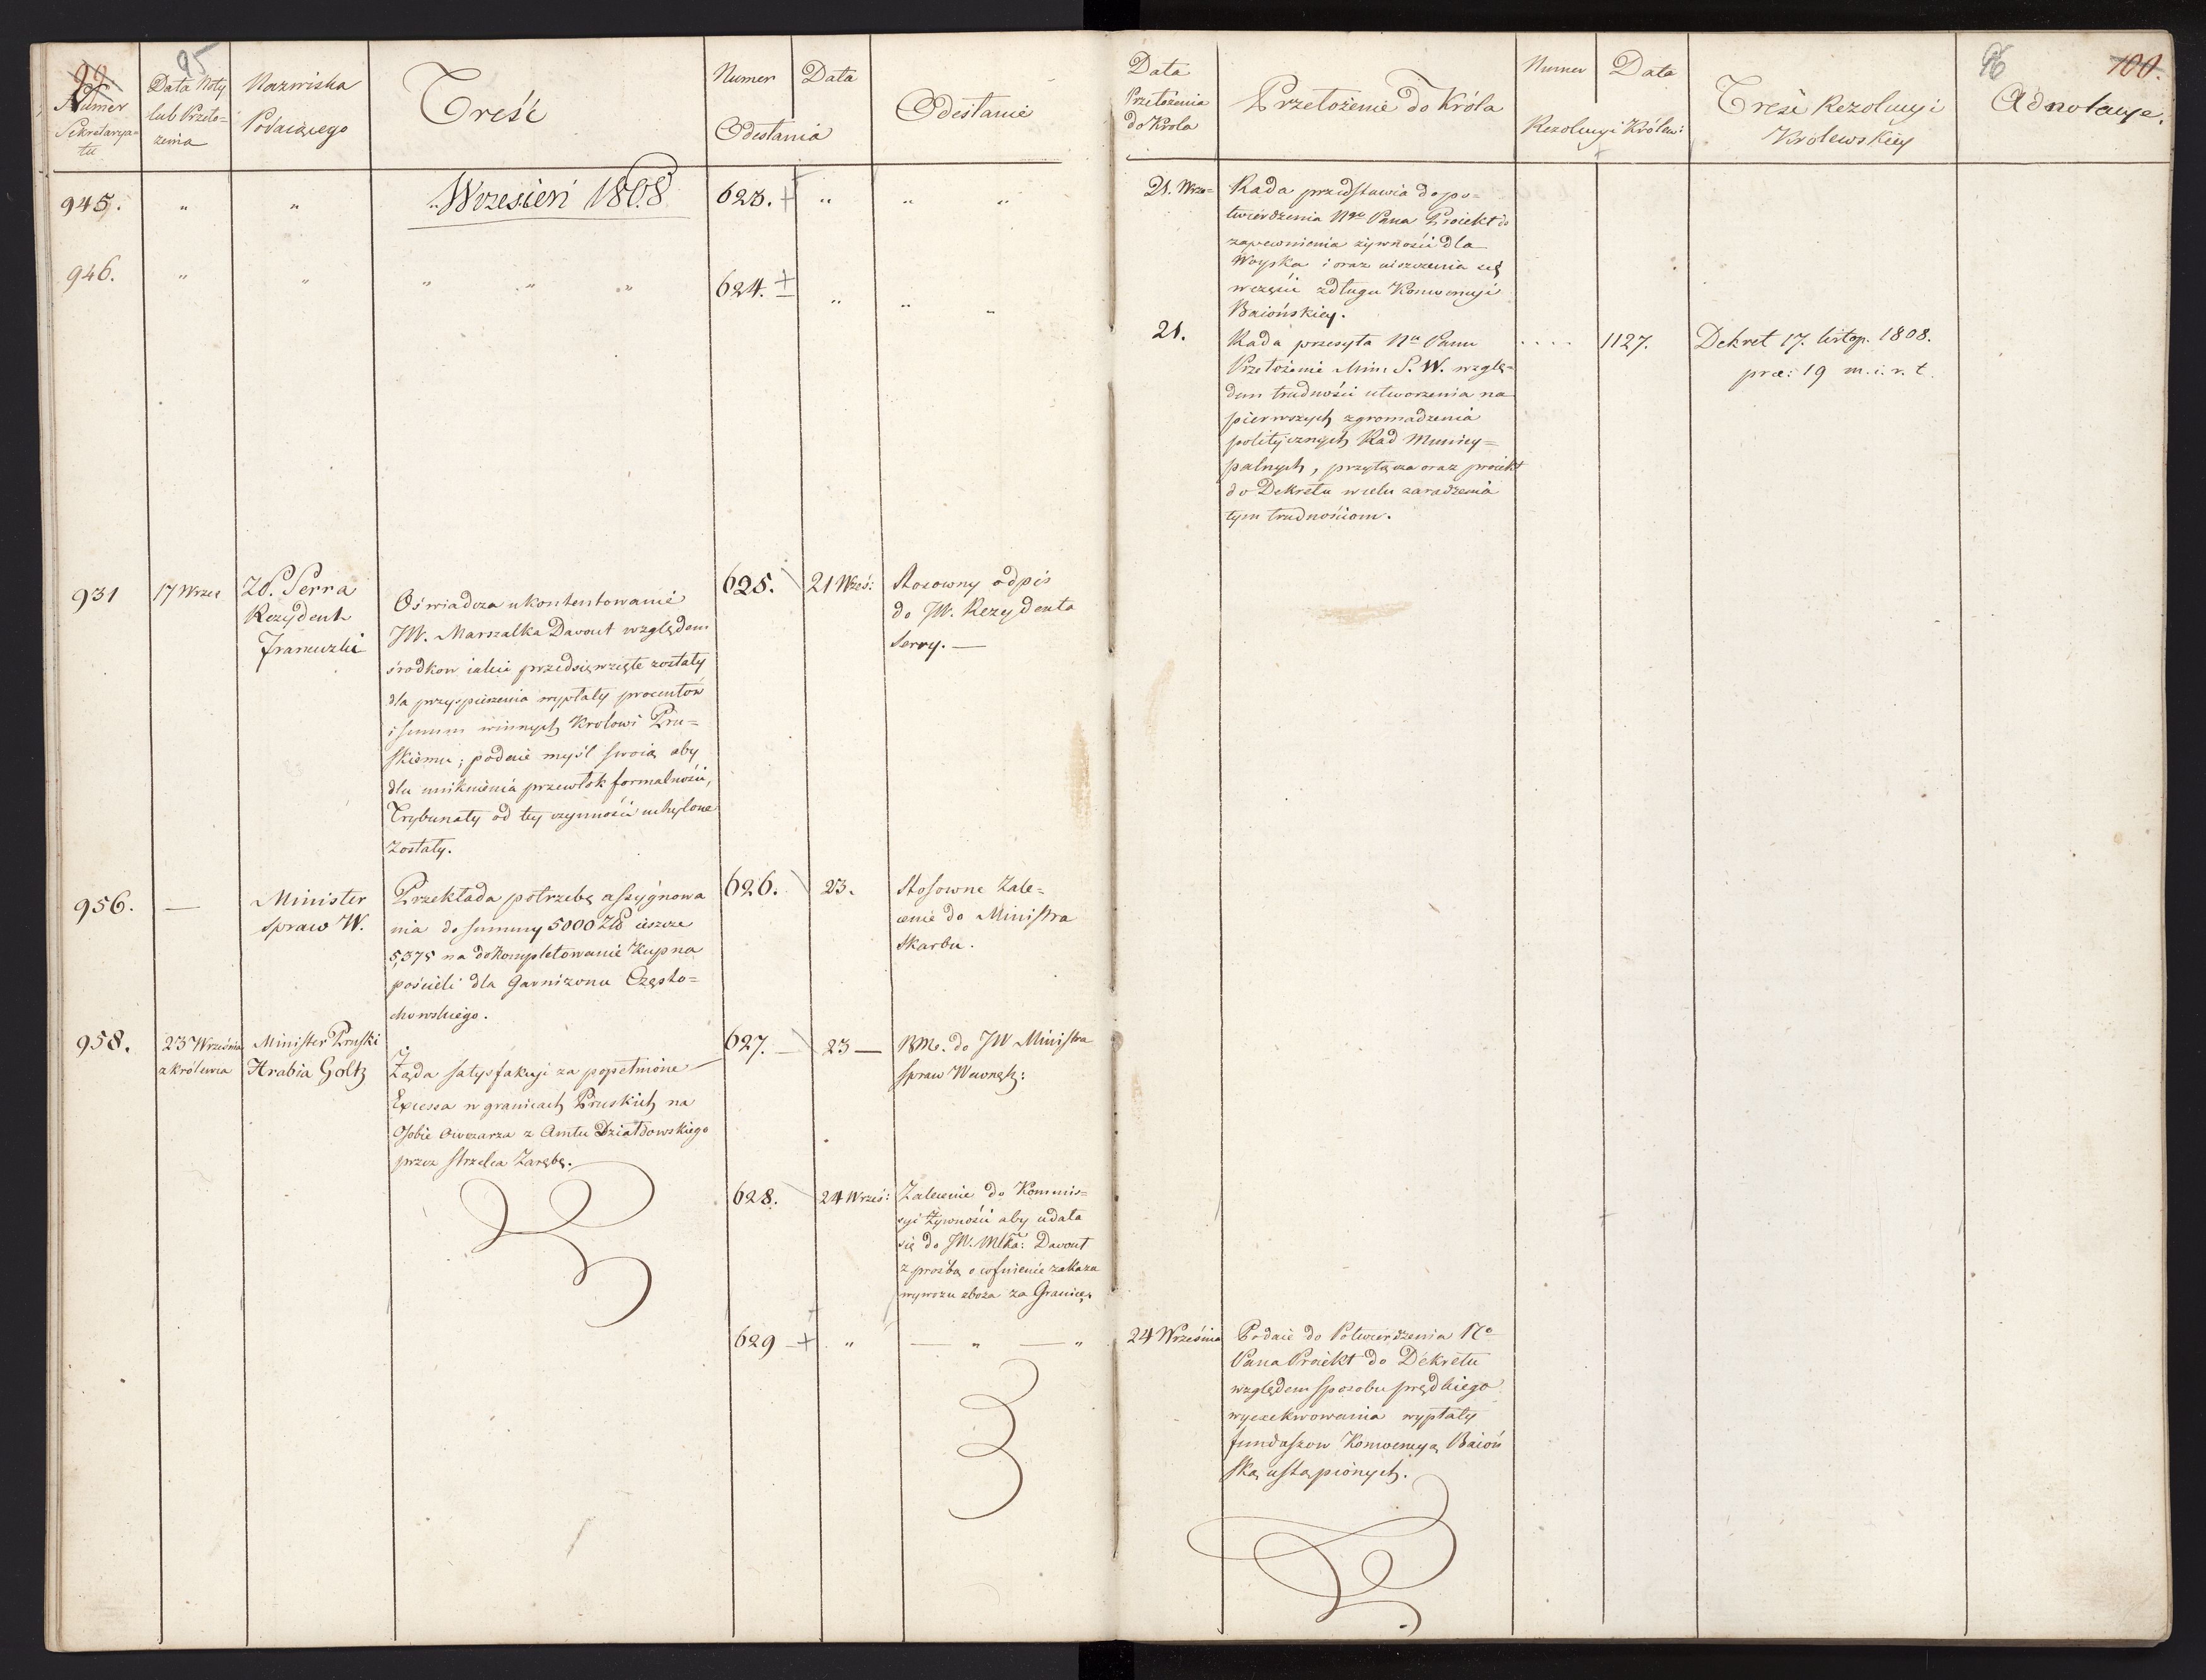 99
95
Numer
Sekretarya=
tu
Data Noty
lub Przeło=
żenia
Nazwiska
Podaiącego
Treść
Numer
Data
Odesłania
Odesłanie
945.
"
"
Wrzesień 1808
623.
"
"
"
946.
"
"
"
"
"
624.
"
"
"
931
17 Wrześ
ZdP. Serra
Rezydent
Francuzki
Oświadcza ukontentowanie
JW. Marszałka Davout względem
środkow iakie przedsięwzięte zostały
dla przyspieszenia wypłaty procentów
i summ winnych Krolowi Pru=
skiemu; podaie myśl swoią aby
dla uniknienia przewłok formalności,
Trybunały od tey czynności uchylone
zostały.
625.
21 Wrześ:
Stosowny odpis
do JW. Rezydenta
Serry. —
956.
—
Minister
Spraw W.
Przekłada potrzebę assygnowa
nia do summy 5000 Złł ieszcze
5,375 na dokompletowanie Kupna
pościeli dla Garnizonu Często=
chowskiego.
626.
23.
Stosowne Zale=
cenie do Ministra
Skarbu.
958.
23 Września
z Królewca
Minister Pruski
Hrabia Goltz
Żąda satysfakcyi za popełnione
Excessa w granicach Pruskich na
Osobie Owczarza z Amtu Działdowskiego
przez strzelca Zarębę.
627. —
23 —
BMe. do JW Ministra
Spraw Wewnętz:
628.
24 Wrześ:
Zalecenie do Kommis=
syi Żywności aby udała
się do JW. Młka: Davout
z prośbą o cofnienie zakazu
wywozu zboża za Granicę.
629
"
— " — "
96
100.
Data
Przełożenia
do Krola
Przełożenie do Króla
Numer
Data
Rezolucyi Królew:
Treść Rezolucyi
Królewskiey
Adnotacye.
21. Wrze=
Rada przedstawia do po=
twierdzenia Ngo Pana Proiekt do
zapewnienia żywności dla
Woyska i oraz uiszczenia się
w części z długu Konwencyi
Baiońskiey.
21.
Rada przesyła Nu Panu
Przełożenie Min: S. W. wzglę=
dem trudności utworzenia na
pierwszych zgromadzenia
politycznych Rad Municy=
palnych, przyłącza oraz proiekt
do Dekretu w celu zaradzenia
tym trudnościom.
. . . .
1127.
Dekret 17. listop. 1808.
præ: 19 m. i. r. t.
24 Września
Podaie do Potwierdzenia No
Pana Proiekt do Dekretu
względem sposobu prędkiego
wyexekwowania wypłaty
funduszow Konwencyą Baioń
ską ustąpionych.